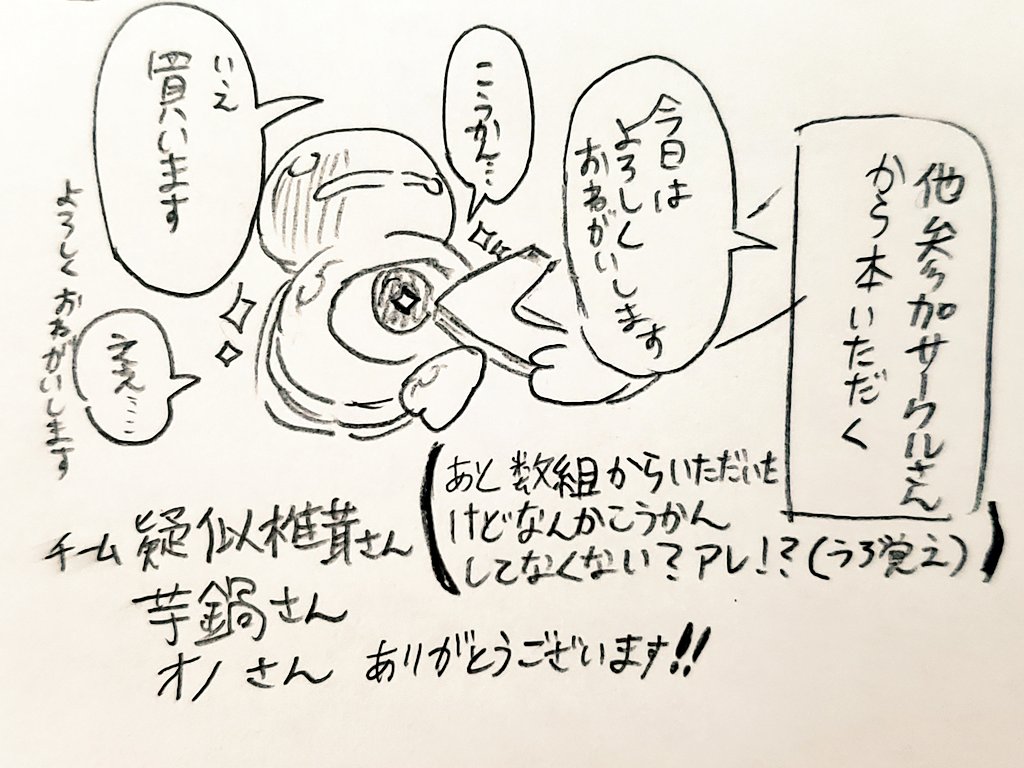 他参加サークルさん
から本いただく
今日は
よろしく
おねがいします
こうかん…
いえ
買います
よろしくおねがいします
ええ……
あと数組からいただいた
けどなんかこうかん
してなくない？アレ!?(うろ覚え)
チーム疑似椎茸さん
芋鍋さん
オノさん ありがとうございます!!